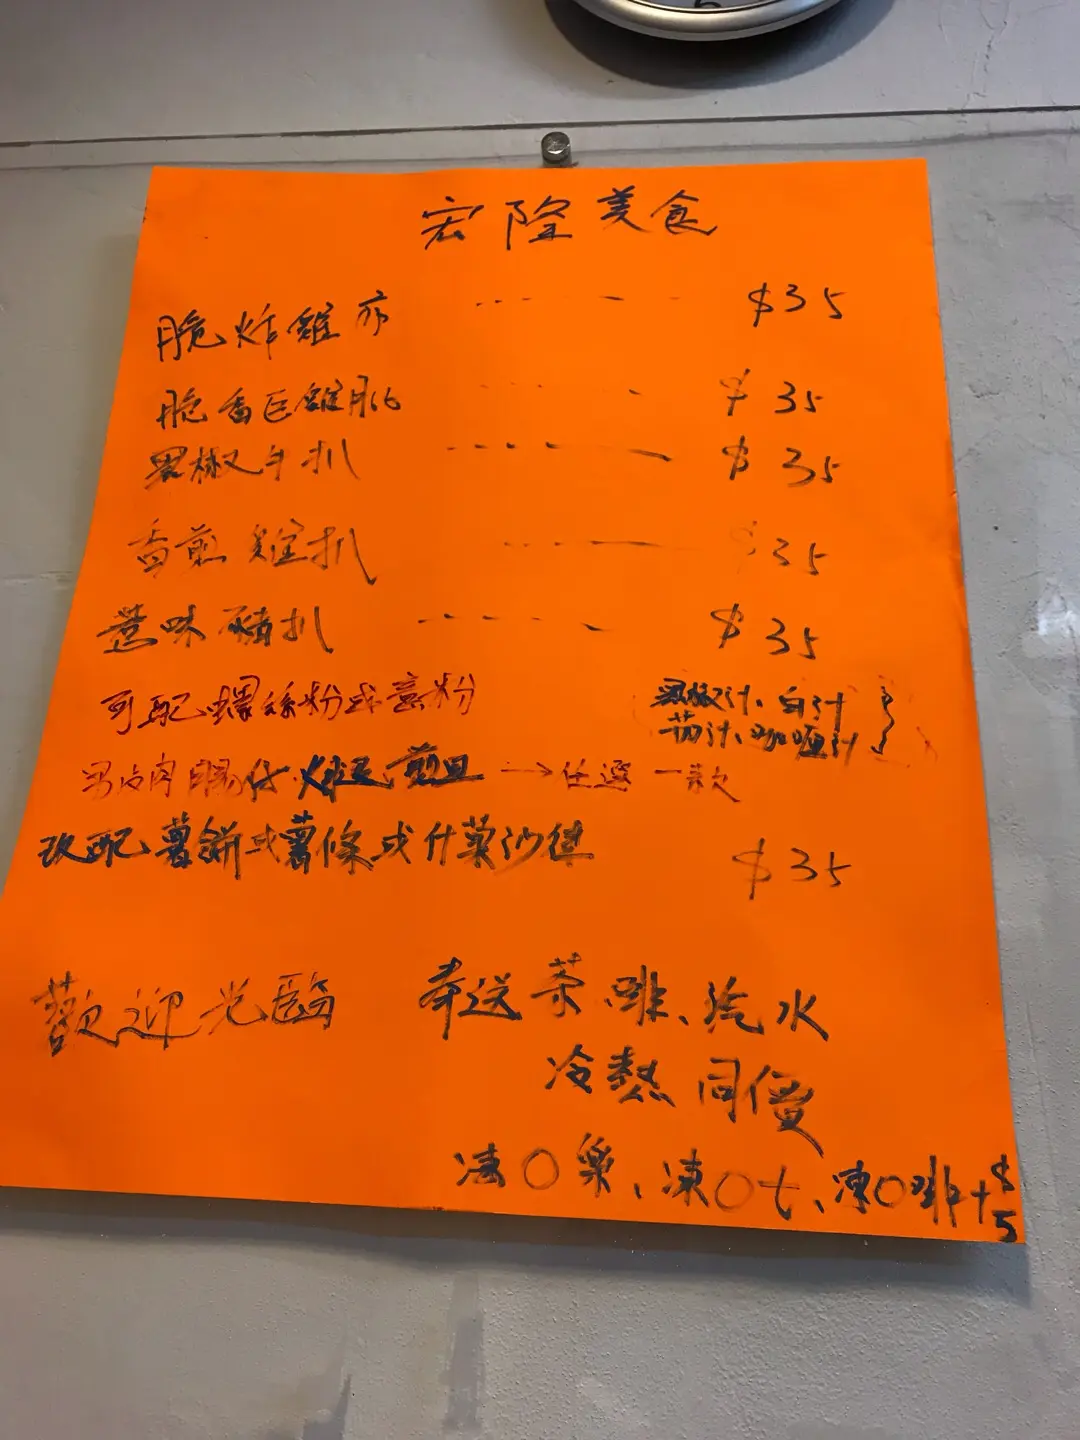 宏隆美食
脆炸雞亦 ---- $35
脆香巨雞髀 ---- $35
黑椒牛扒 ---- $35
香煎雞扒 ---- $35
惹味豬扒 ---- $35
可配螺絲粉或意粉
黑椒汁、白汁
茄汁、咖喱汁
肉腸仔 火腿 煎旦 → 任選一款
改配薯餅或薯條或什菜沙律 $35
歡迎光臨
奉送茶、啡、汽水
冷熱同價
凍〇樂、凍〇七、凍〇啡+$5